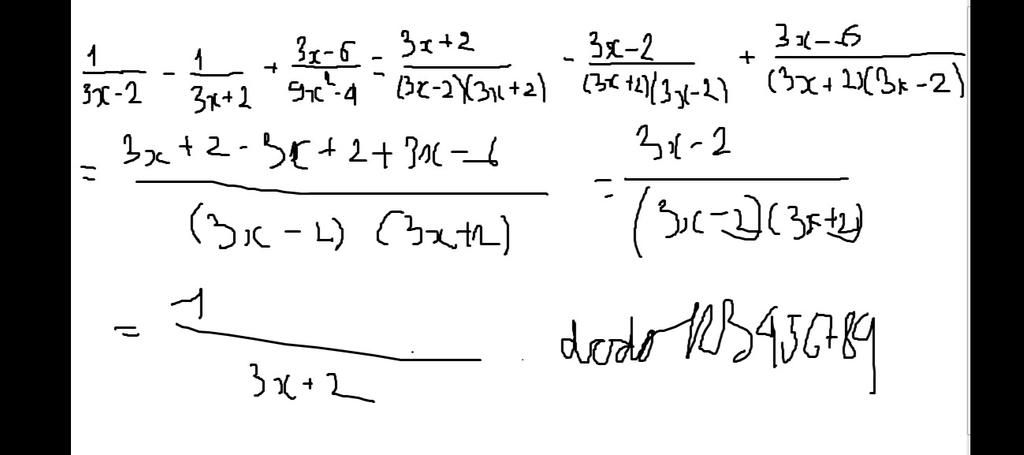 1/(3x-2) - 1/(3x+2) + (3x-6)/(9x²-4) = (3x+2)/((3x-2)(3x+2)) - (3x-2)/((3x+2)(3x-2)) + (3x-6)/((3x+2)(3x-2))
= (3x+2-3x+2+3x-6)/((3x-2)(3x+2)) = (3x-2)/((3x-2)(3x+2))
= 1/(3x+2) dodo123456789